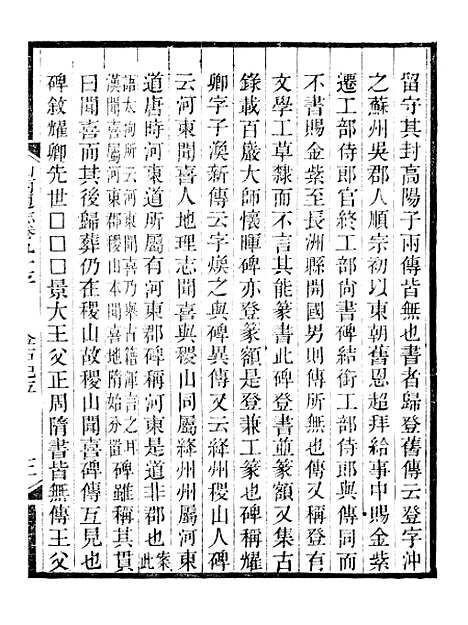 留守其封高陽子兩傳皆無也書者歸登舊傳云登字沖
之蘇州吳郡人順宗初以東朝舊恩超拜給事中賜金紫
遷工部侍郎官終工部尚書碑結銜工部侍郎與傳同而
不書賜金紫至長洲縣開國男則傳所無也傳又稱登有
文學工草隸而不言其能篆書此碑登書並篆額又集古
錄載百巖大師懷暉碑亦登篆額是登兼工篆也碑稱耀
卿字子渙新傳云字煥之與碑異傳又云絳州稷山人碑
云河東聞喜人地理志聞喜與稷山同屬絳州州屬河東
道唐時河東道所屬有河東郡碑稱河東是道非郡也案此
語太拘所云河東聞喜乃舉古籍渾言之耳
漢聞喜屬河東郡稷山本聞喜地隋始分置碑雖稱其貫
曰聞喜而其後歸葬仍在稷山故稷山聞喜碑傳互見也
碑敘耀卿先世□□□景大王父正周隋書皆無傳王父